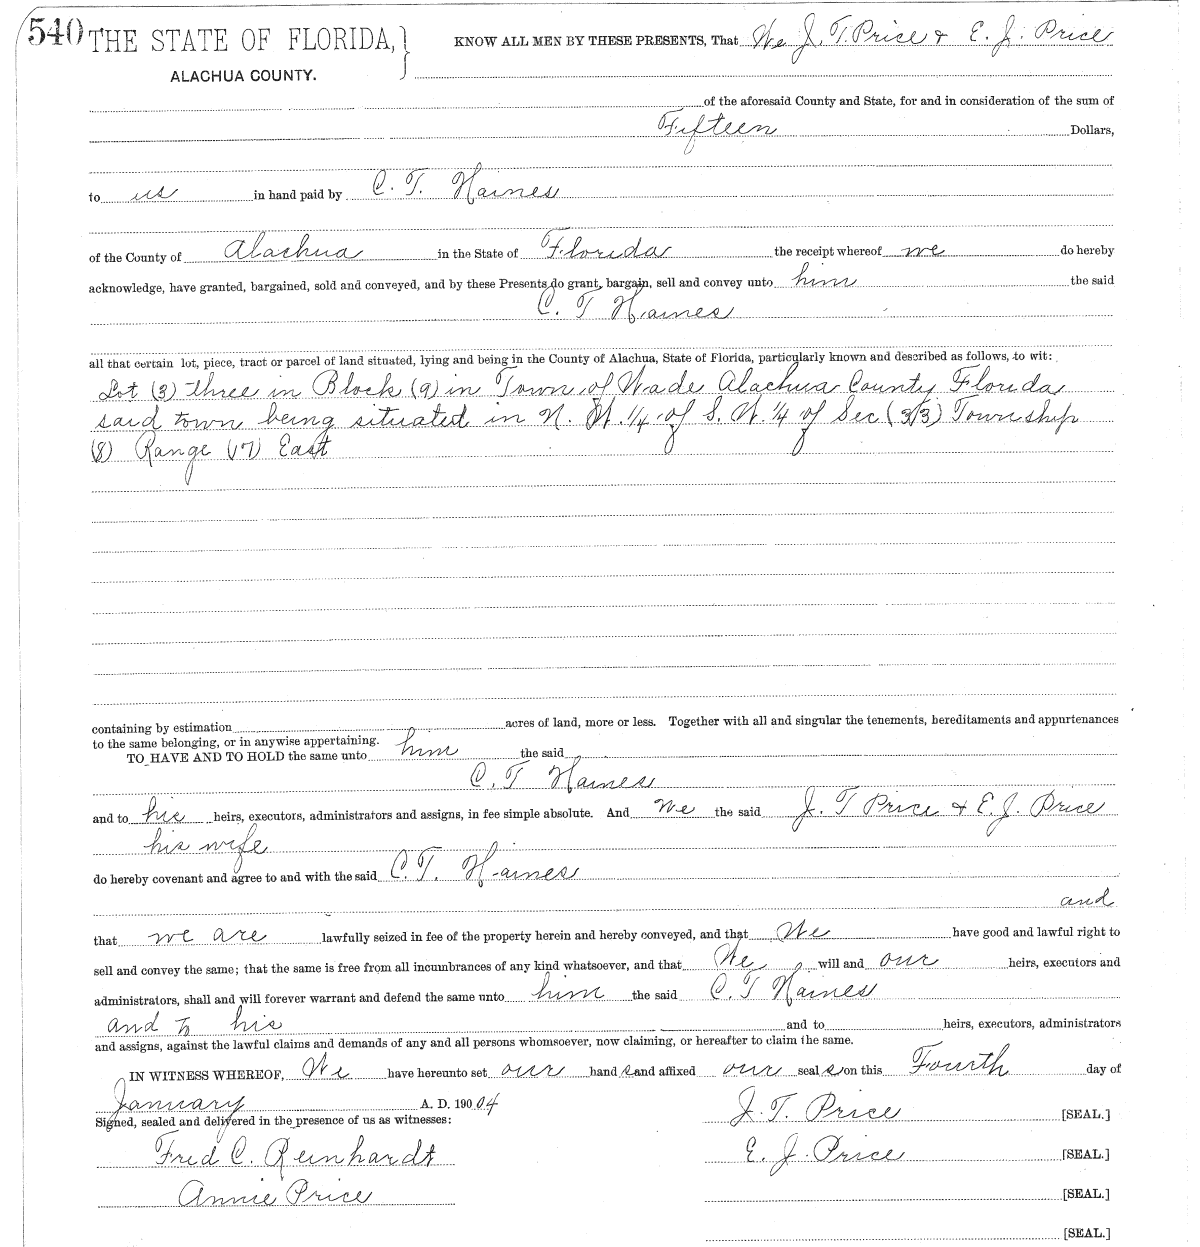 540 THE STATE OF FLORIDA, } KNOW ALL MEN BY THESE PRESENTS, That We J. T. Price & E. J. Price
ALACHUA COUNTY.
of the aforesaid County and State, for and in consideration of the sum of
Fifteen Dollars,
to us in hand paid by C. T. Haines
of the County of Alachua in the State of Florida the receipt whereof we do hereby
acknowledge, have granted, bargained, sold and conveyed, and by these Presents do grant, bargain, sell and convey unto him the said
C. T Haines
all that certain lot, piece, tract or parcel of land situated, lying and being in the County of Alachua, State of Florida, particularly known and described as follows, to wit:
Lot (3) three in Block (9) in Town of Wade Alachua County Florida
said town being situated in N. W. 1/4 of S. W. 1/4 of Sec (33) Township
(8) Range (17) East
containing by estimation acres of land, more or less. Together with all and singular the tenements, hereditaments and appurtenances
to the same belonging, or in anywise appertaining.
TO HAVE AND TO HOLD the same unto him the said
C. T Haines
and to his heirs, executors, administrators and assigns, in fee simple absolute. And We the said J. T Price & E. J. Price
his wife
do hereby covenant and agree to and with the said C. T. Haines
and
that we are lawfully seized in fee of the property herein and hereby conveyed, and that We have good and lawful right to
sell and convey the same; that the same is free from all incumbrances of any kind whatsoever, and that We will and our heirs, executors and
administrators, shall and will forever warrant and defend the same unto him the said C. T Haines
and to his and to heirs, executors, administrators
and assigns, against the lawful claims and demands of any and all persons whomsoever, now claiming, or hereafter to claim the same.
IN WITNESS WHEREOF, We have hereunto set our hand s and affixed our seal s on this Fourth day of
January A. D. 190 04
Signed, sealed and delivered in the presence of us as witnesses: J. T. Price [SEAL.]
Fred C. Reinhardt E. J. Price [SEAL.]
Annie Price [SEAL.]
[SEAL.]